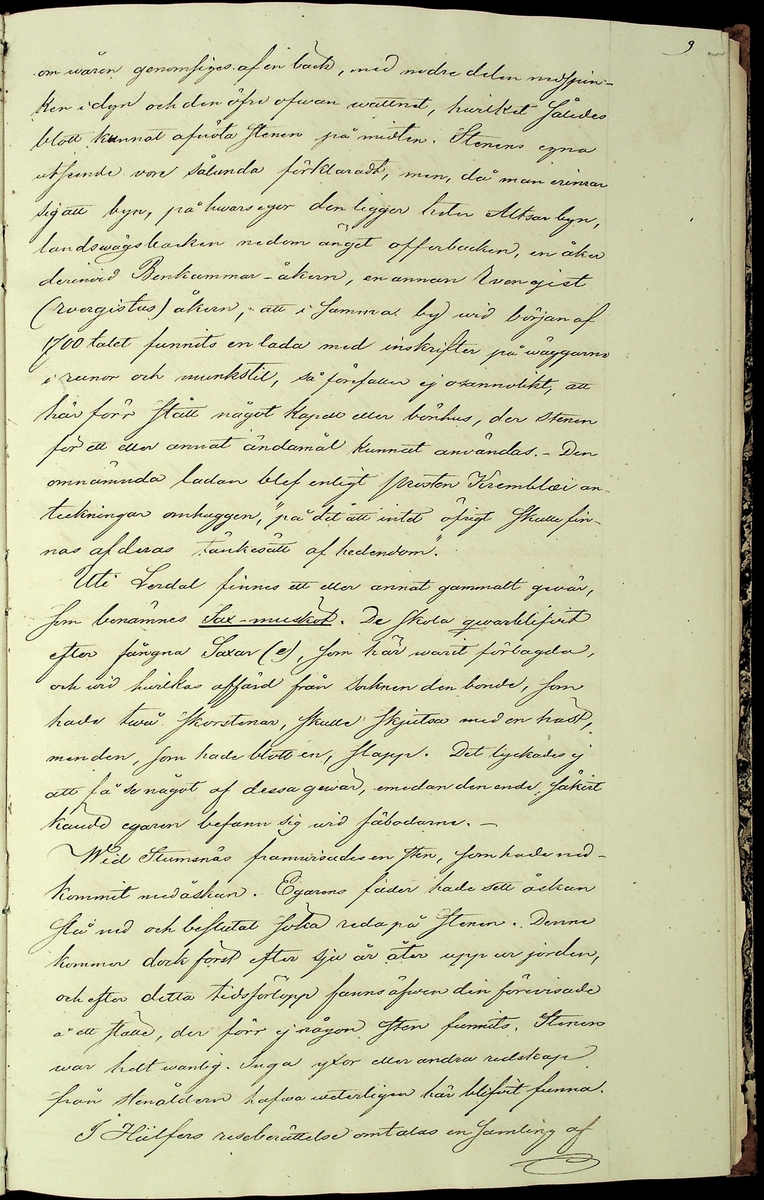 9
om wåren genomflyges af en bäck, med nedre delen nedsjun-
ken i dyn och den öfre ofwan wattnet, hwilket således
blott kunnat afnöta stenen på midten. Stenens egna
utseende vore sålunda förklaradt, men, då man erinrar
sig att byn, på hwars egor den ligger heter Altsarbyn,
landswägsbacken nedom änget offerbacken, en åker
derinvid Benkammar-åkern, en annan Evengist
(Evergistus) åkern, att i samma by wid början af
1700 talet funnits en lada med inskrifter på wäggarne
i runor och munkstil, så förefaller ej osannolikt, att
här förr stått något kapell eller bönhus, der stenen
för ett eller annat ändamål kunnat användas. – Den
omnämnda ladan blef enligt prosten Kremblæi an-
teckningar omhuggen, "på det att intet öfrigt skulle fin-
nas af deras tänkesätt af hedendom".
Uti Lerdal finnes ett eller annat gammalt gevär,
som benämnes Sax-musköt. De skola qwarblifvit
efter fångna Saxar (e), som här warit förlagda,
och wid hwilkas affärd från socknen den bonde, som
hade twå skorstenar, skulle skjutsa med en häst,
men den, som hade blott en, slapp. Det lyckades ej
att få se något af dessa gewär, emedan den ende, säkert
kände egaren befann sig wid fäbodarne. –
Wid Stumsnäs framwisades en sten, som hade ned-
kommit med åskan. Egarens fader hade sett åskan
slå ned och beslutat söka reda på stenen. Denne
kommer dock först efter sju år åter upp ur jorden,
och efter detta tidsförlopp fanns äfwen den förevisade
å ett ställe, der förr ej någon sten funnits. Stenen
war helt wanlig. Inga yxor eller andra redskap
från stenåldern hafwa weterligen här blifvit funna.
I Hülfers reseberättelse omtalas en samling af